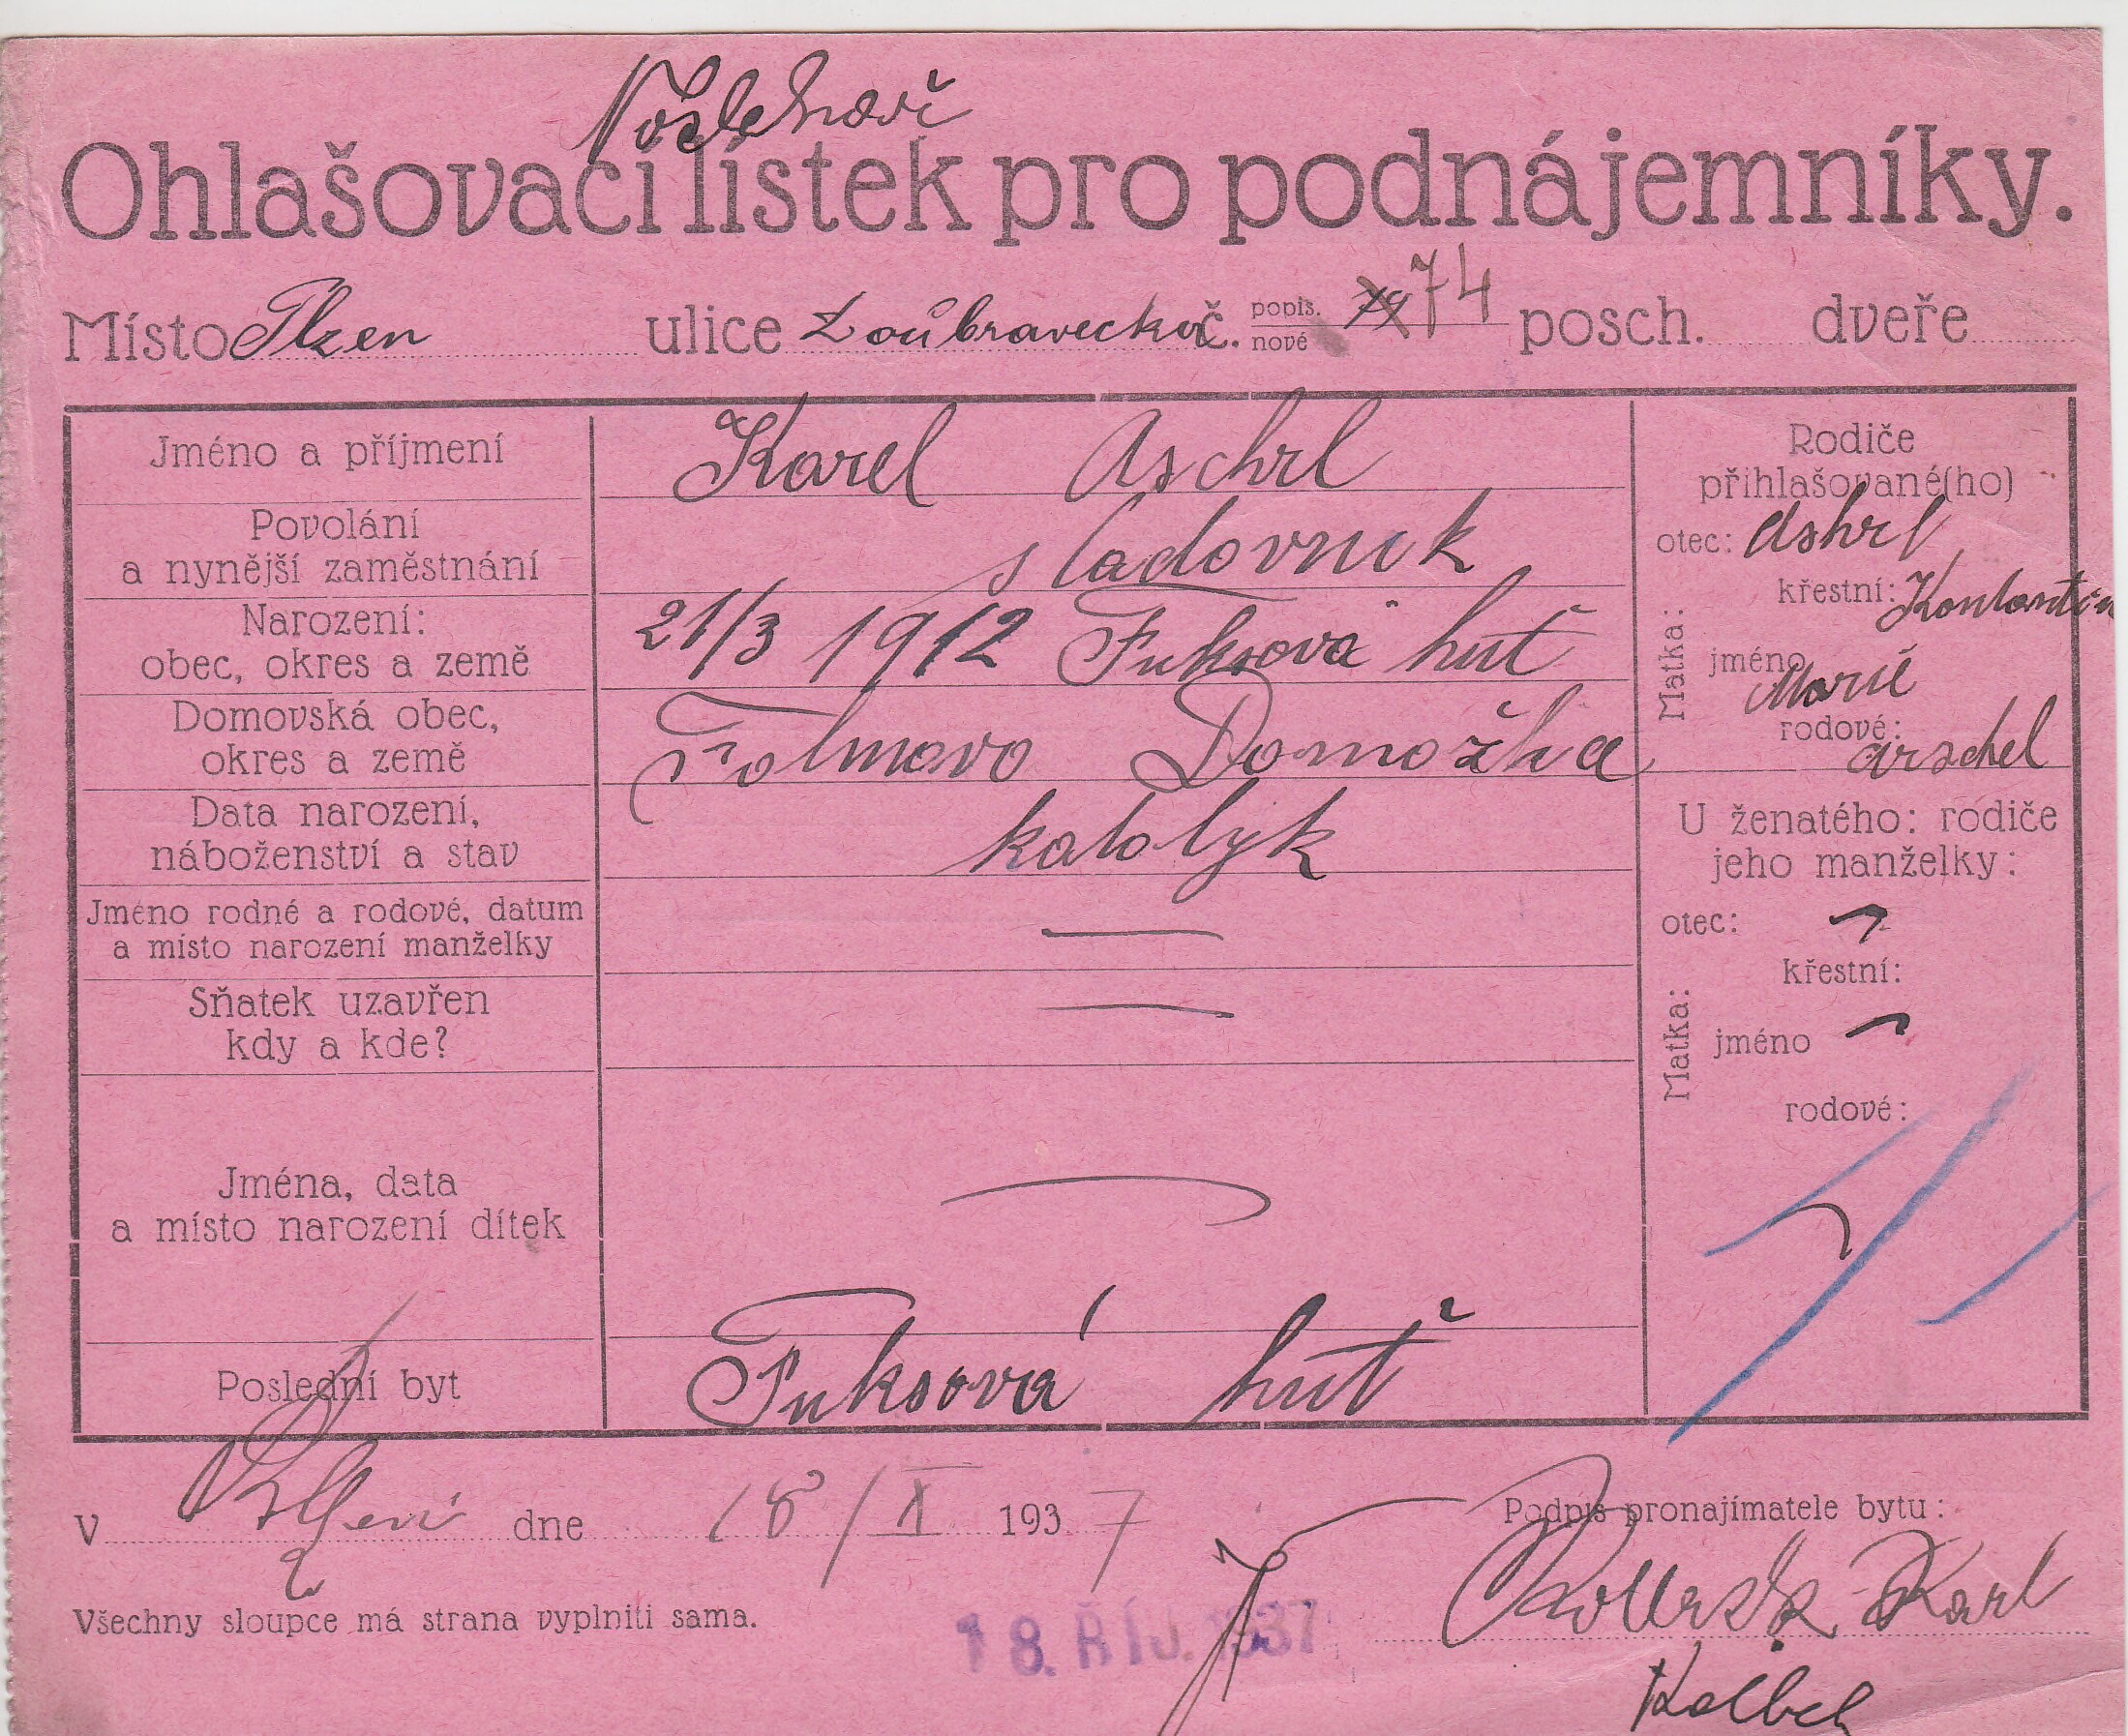 Noclehář
Ohlašovací lístek pro podnájemníky.
Místo Plzen ulice Doubravecka č. popis. nové 74 posch. dveře
Jméno a příjmení Karel Aschrl
Povolání a nynější zaměstnání sladovnik
Narození: obec, okres a země 21/3 1912 Fuksova huť
Domovská obec, okres a země Folmavo Domažlice
Data narození, náboženství a stav katolyk
Jméno rodné a rodové, datum a místo narození manželky —
Sňatek uzavřen kdy a kde? —
Jména, data a místo narození dítek
Poslední byt Fuksová huť
Rodiče
přihlašované(ho)
otec: Ashrl
Matka:
křestní:
jméno Marie
rodové: Arschel
U ženatého: rodiče
jeho manželky:
otec:
Matka:
křestní:
jméno
rodové:
V Plzni dne 18/X 1937
Podpis pronajímatele bytu:
Karl
Všechny sloupce má strana vyplniti sama.
18. ŘÍJ. 1937